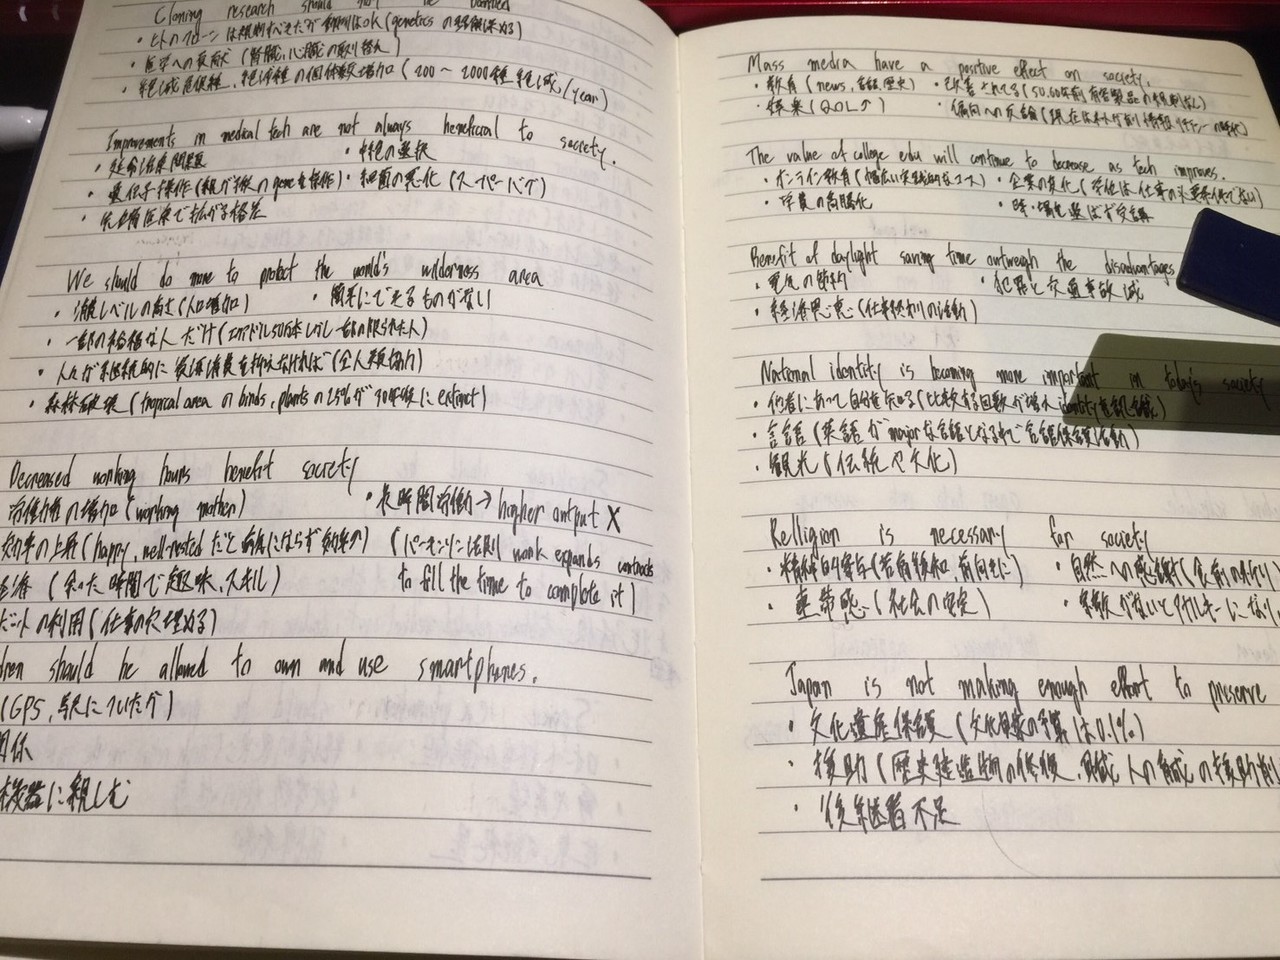 Cloning research should not be banned
・ヒトのクローンは規制すべきだが動物はOK(genetics の理解深める)
・医学への貢献(腎臓,心臓の取り替え)
・絶滅危惧種、絶滅種の個体数増加(200〜2000種絶滅/year)
Improvements in medical tech are not always beneficial to society.
・延命治療問題 ・中絶の選択
・遺伝子操作(親が子供のgeneを操作)・細菌の悪化(スーパーバグ)
・先進医療で広がる格差
We should do more to protect the world's wilderness area
・消費レベルの高さ(人口増加) ・簡単にできるものがない
・一部の裕福な人だけ
・人々が継続的に消費を抑えなければ(全人類協力)
・森林破壊(tropical area の birds, plants の25%が 後に extinct)
Decreased working hours benefit society
労働力の増加(working mother) ・長時間労働→higher output X
効率の上昇(happy, well-rested だと病気にならず効率の) (パーキンソン法則 work expands contracts
(余った時間で趣味、スキル) to fill the time to complete it)
の利用(仕事の穴埋める)
dren should be allowed to own and use smartphones.
(GPS,
関係
機器に親しむ
Mass media have a positive effect on society.
・教育(news, 言語, 歴史) ・改善されてる(50,60年前有害製品の規制なし)
・娯楽(QOL↑) ・偏向への反論(現在はネットが有り情報リテラシーの時代)
The value of college edu will continue to decrease as tech improves.
・オンライン教育(幅広い実践的なコース) ・企業の変化(学位は仕事の必要条件でない)
・学費の高騰化 ・時・場を選ばず受講
Benefit of daylight saving time outweigh the disadvantages
・電気の節約 ・犯罪と交通事故減
・経済恩恵(仕事終わりの活動)
National identity is becoming more important in today's society
・他者にあって自分を知る(比較する回数が増え identity を認識)
・言語(英語が major な言語となる中で言語保護活動)
・観光(伝統や文化)
Relligion is necessary for society
・精神的寄与(苦痛緩和,前向きに) ・自然への感謝(食前の祈り)
・連帯感(社会の安定) ・宗教がないと
Japan is not making enough effort to preserve
・文化遺産保護(文化財の予算は0.1%)
・援助(歴史建造物の修復,職人の
・後継者不足